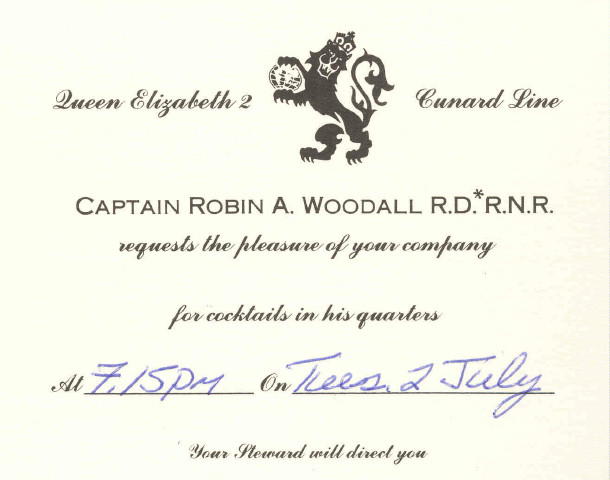 Queen Elizabeth 2 Cunard Line
CAPTAIN ROBIN A. WOODALL R.D.* R.N.R.
requests the pleasure of your company
for cocktails in his quarters
At 7.15pm On Tues. 2 July
Your Steward will direct you